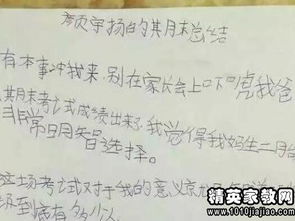 顾宇扬的期末总结
有本事冲我来,别在家长会上吓唬我爸
其期末考试成绩出来了,我觉得我妈生二月台
非常明智选择。
这场考试对于我的意义
病有多么
精英家教网
www.1010jiajiao.com